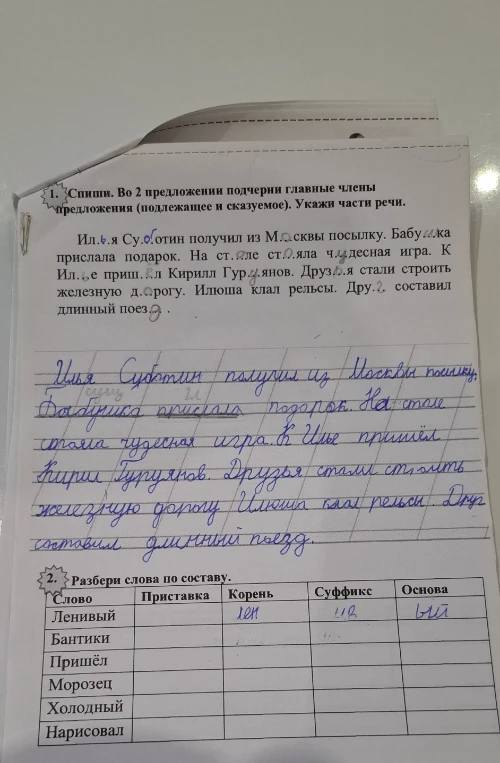 1. Спиши. Во 2 предложении подчерни главные члены
предложения (подлежащее и сказуемое). Укажи части речи.
Ил.ь.я Су.б.отин получил из М.о.сквы посылку. Бабу.ш.ка
прислала подарок. На ст.о.ле ст.о.яла ч.у.десная игра. К
Ил.ь.е приш.ё.л Кирилл Гур.у.янов. Друз.ь.я стали строить
железную д.о.рогу. Илюша клал рельсы. Дру.г. составил
длинный поез.д .
Илья Суботин получил из Москвы посылку.
сущ гл
Бабушка прислала подарок. На столе
стояла чудесная игра. К Илье пришёл
Кирил Гуруянов. Друзья стали строить
железную дорогу Илюша клал рельсы. Друг
составил длинный поезд.
2. Разбери слова по составу.
Слово Приставка Корень Суффикс Основа
Ленивый лен ив ый
Бантики
Пришёл
Морозец
Холодный
Нарисовал